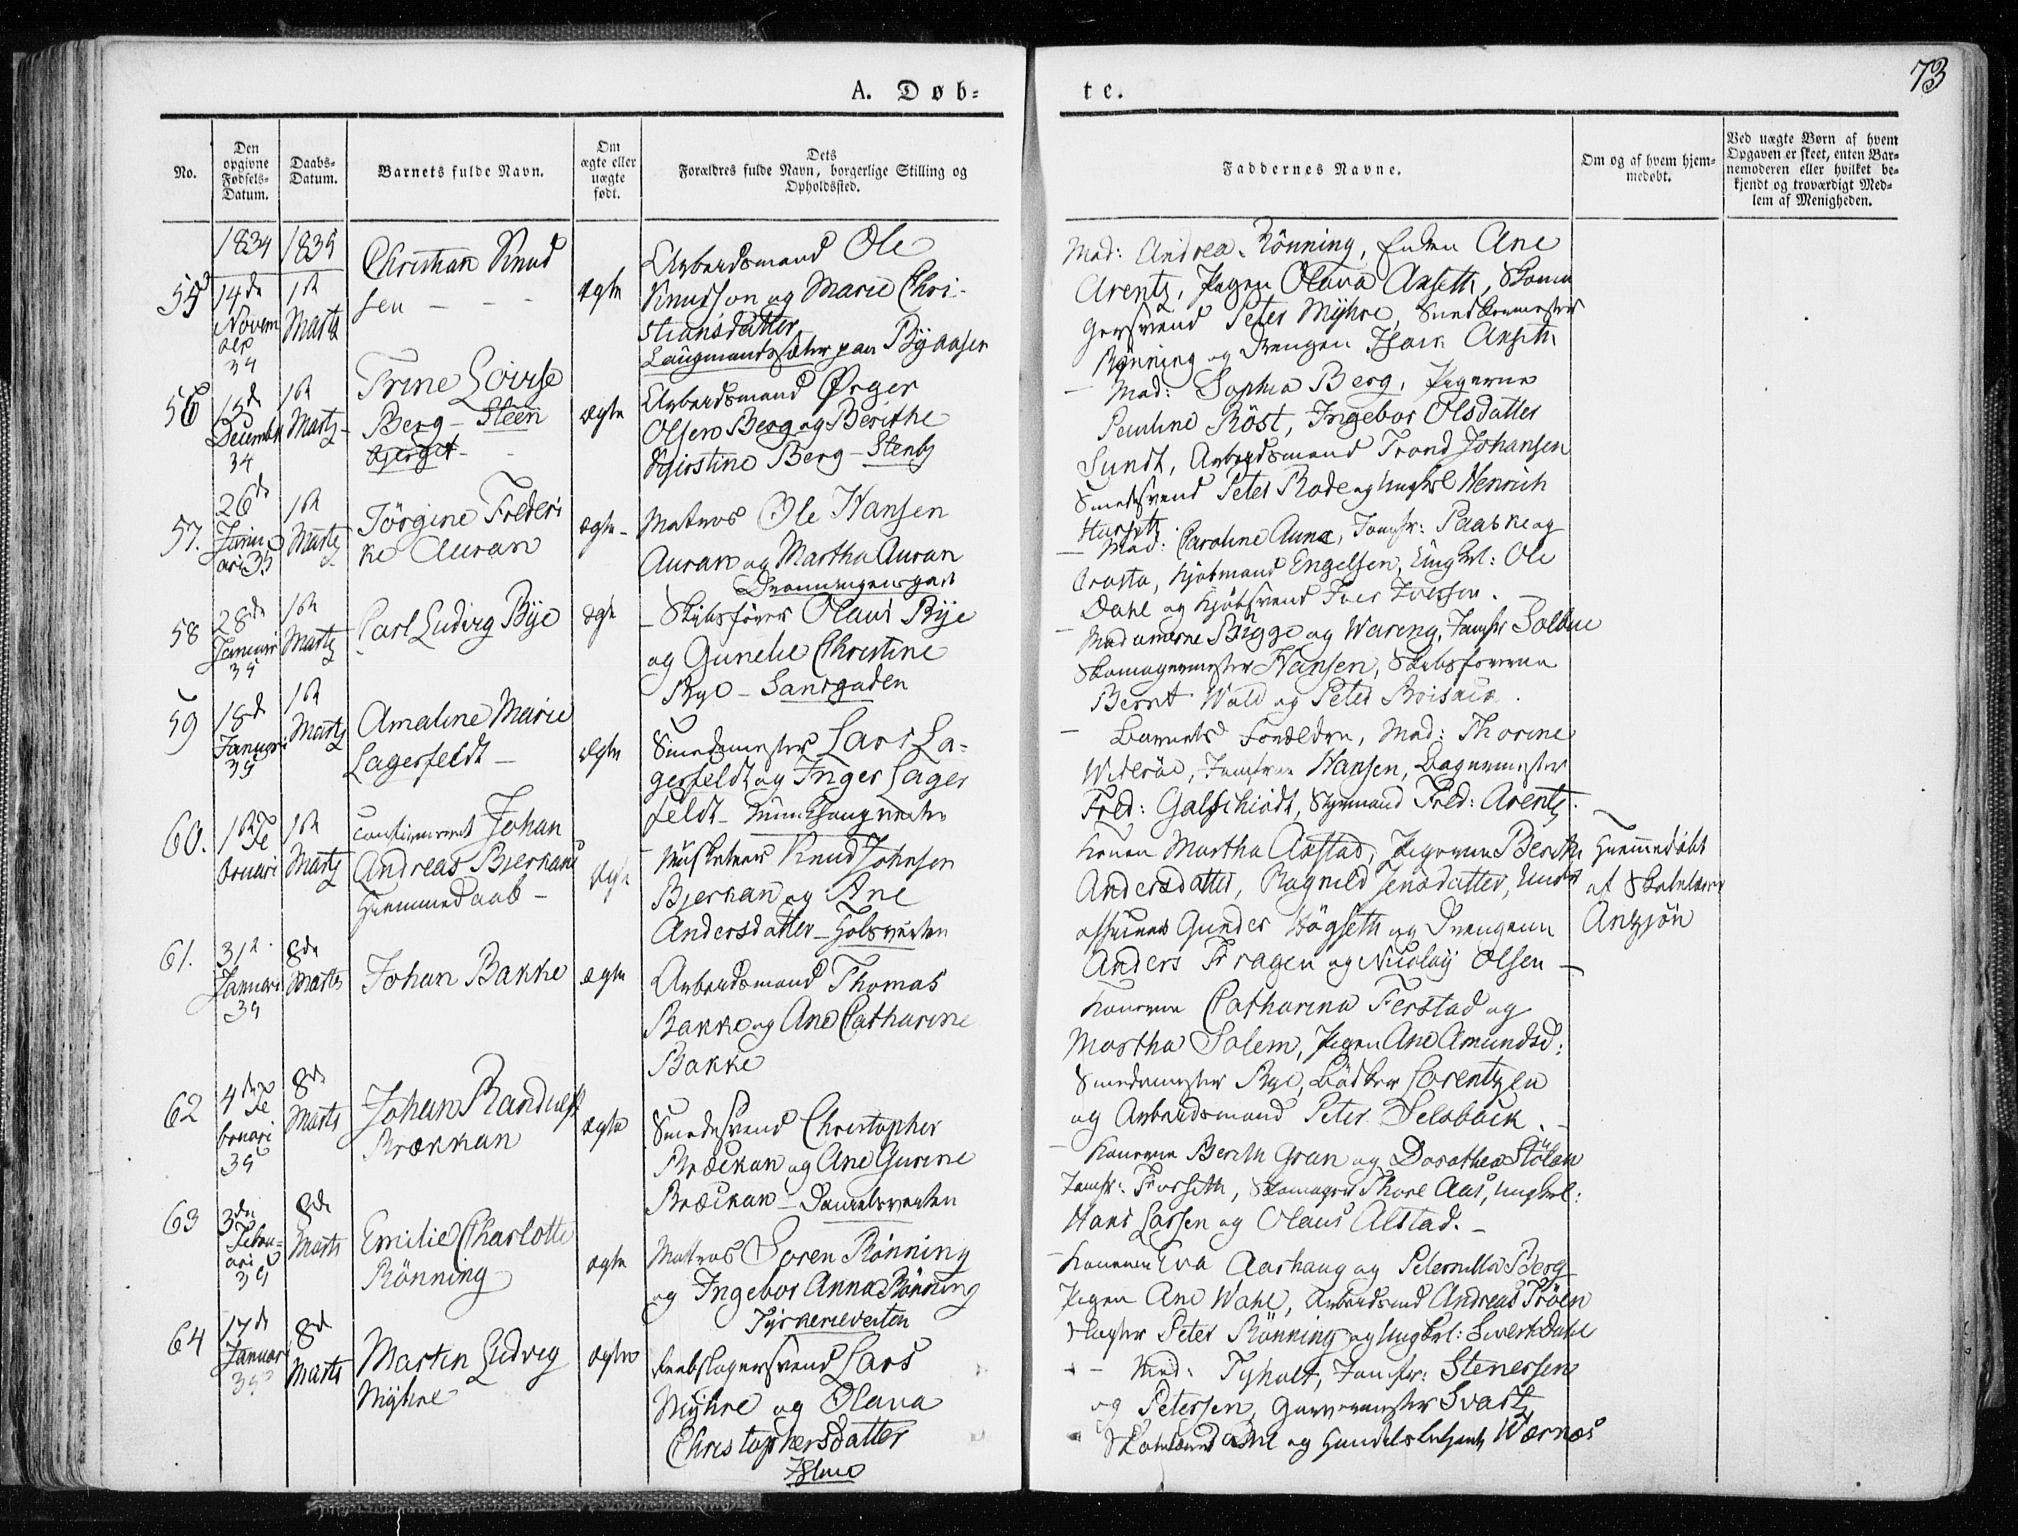 73
A. Døb-
te.
No.
Den
opgivne
Fødsels-
Datum.
Daabs-
Datum.
Barnets fulde Navn.
Om
ægte eller
uægte
født.
Dets
Forældres fulde Navn, borgerlige Stilling og
Opholdssted.
Faddernes Navne.
Om og af hvem hjem-
medøbt.
Ved uægte Børn af hvem
Opgaven er skeet, enten Bar-
nemoderen eller hvilket be-
kjendt og troværdigt Med-
lem af Menigheden.
1834
1835
55
14de
Novem
34
1ste
Marts
Christian Knud
sen - - -
ægte
Arbeidsmand Ole
Knudson og Marie Chri-
stiansdatter
paa Byaasen
Mad: Andrea Rönning, Ane
Arentz, Pigen Olava Aaseth, Skoma
gersvend Peter Myhre,
Rönning og Drengen Isach Anseth
56
13de
Decembr
34
1ste
Marts
Trine Lovise
Berg - Steen
berget
ægte
Arbeidsmand Örger
Olsen Berg og Berithe
Kjirstine Berg - Stenb
- Mad: Sophia Berg, Pigerne
Pauline Röst, Ingebor Olsdatter
Sundt, Arbeidsmand Trond Johansen
Smedesvend Peter Rode og Ungkrl Henrich
57.
26de
Janu
ari 35
1ste
Marts
Jörgine Frederi
ke Auran
ægte -
Matros Ole Hansen
Auran og Martha Auran
Dronningensgade
- Mad: Caroline Aune, Jomfr: Paaske og
Crosta, Kjøbmand Engelsen, Ungkrl: Ole
Dahl og Kjøbsvend Iver Iversen.
58
28de
Januari
35
1ste
Marts
Carl Ludvig Bye
ægte
- Skibsfører Olaus Bye
og Gunelie Christine
Bye - Sandgaden
- Madamerne Brigge og Wareng, Jomfr Solbue
Skomagermester Hansen, Skibsførerne
Bernt Wold og Peter
59
18de
Januari
35
1ste
Marts
Amaline Marie
Lagerfeldt -
Ægte
Smedemester Lars La-
gerfeldt og Inger Lager
feldt -
- Barnets Forældre, Mad: Thorine
Wideröe, Jomfrue Hansen, Bagermester
Fred: Galschiödt, Styrmand Fred: Arentz.
60.
1ste Fe
bruari
1ste
Marts
confirmeret Johan
Andreas Bjerkans
Hiemmedaab -
Ægte
Musketeer Knud Johnsen
Bjerkan og Ane
Andersdatter -
Konen Martha Aastad, Pigerne Berith
Andersdatter, Ragnild Jensdatter, Under
officeer Gunder Högseth og Drengene
Anders Kragen og Nicolay Olsen -
Hiemmedøbt
af Skolelærer
Anzjön
61.
31te
Januari
35
8de
Marts
Johan Bakke
ægte
Arbeidsmand Thomas
Bakke og Ane Catharine
Bakke
Konerne Catharina Ferstad og
Martha Solem, Pigen Ane Amundsd:
Smedemester Bye, Bödker Lorentzen
og Arbeidsmand Peter Selsback. -
62
4de Fe
bruari
35
8de
Marts
Johan Randulf
Brækkan
ægte
Smedesvend Christopher
Bræckan og Ane Gurine
Bræckan - Danielsveiten
- Konerne Berith Gran og Dorothea Stölan
Jomfr: Forseth, Skomager Thore Aas, Ungkrl:
Hans Larsen og Olaus Alstad. -
63
3die
Febru-
ari
35
8de
Marts
Emilie Charlotte
Rönning
ægte
Matros Soren Rönning
og Ingebor Anna Rönning
- Konerne Eva Aarhaug og Peternilla Berg
Pigen Ane Wahl, Arbeidsmd Andreas Tröen
Slagter Peter Rönning og Ungkrl: Sivert Dahl
64
17de
Januari
35
8de
Marts
Martin Ludvig
Myhre
ægte
Rebslagersvend Lars
Myhre og Olava
Christophersdatter
- Mad: Tyholt, Jomfr: Stenersen
og Petersen, Garvermester Svartz,
og Handelsbetjent Wærnæs